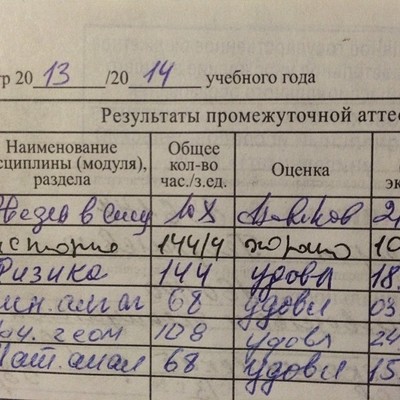 тр 2013/2014 учебного года
Результаты промежуточной аттес
Наименование дисциплины (модуля), раздела Общее кол-во час./з.ед. Оценка эк
в
история 144/4 хорошо 10
Физика 144 удовл 18.
лин. алг 68 удовл 03
ан. геом 108 удовл 24
Мат. анал 68 удовл 15